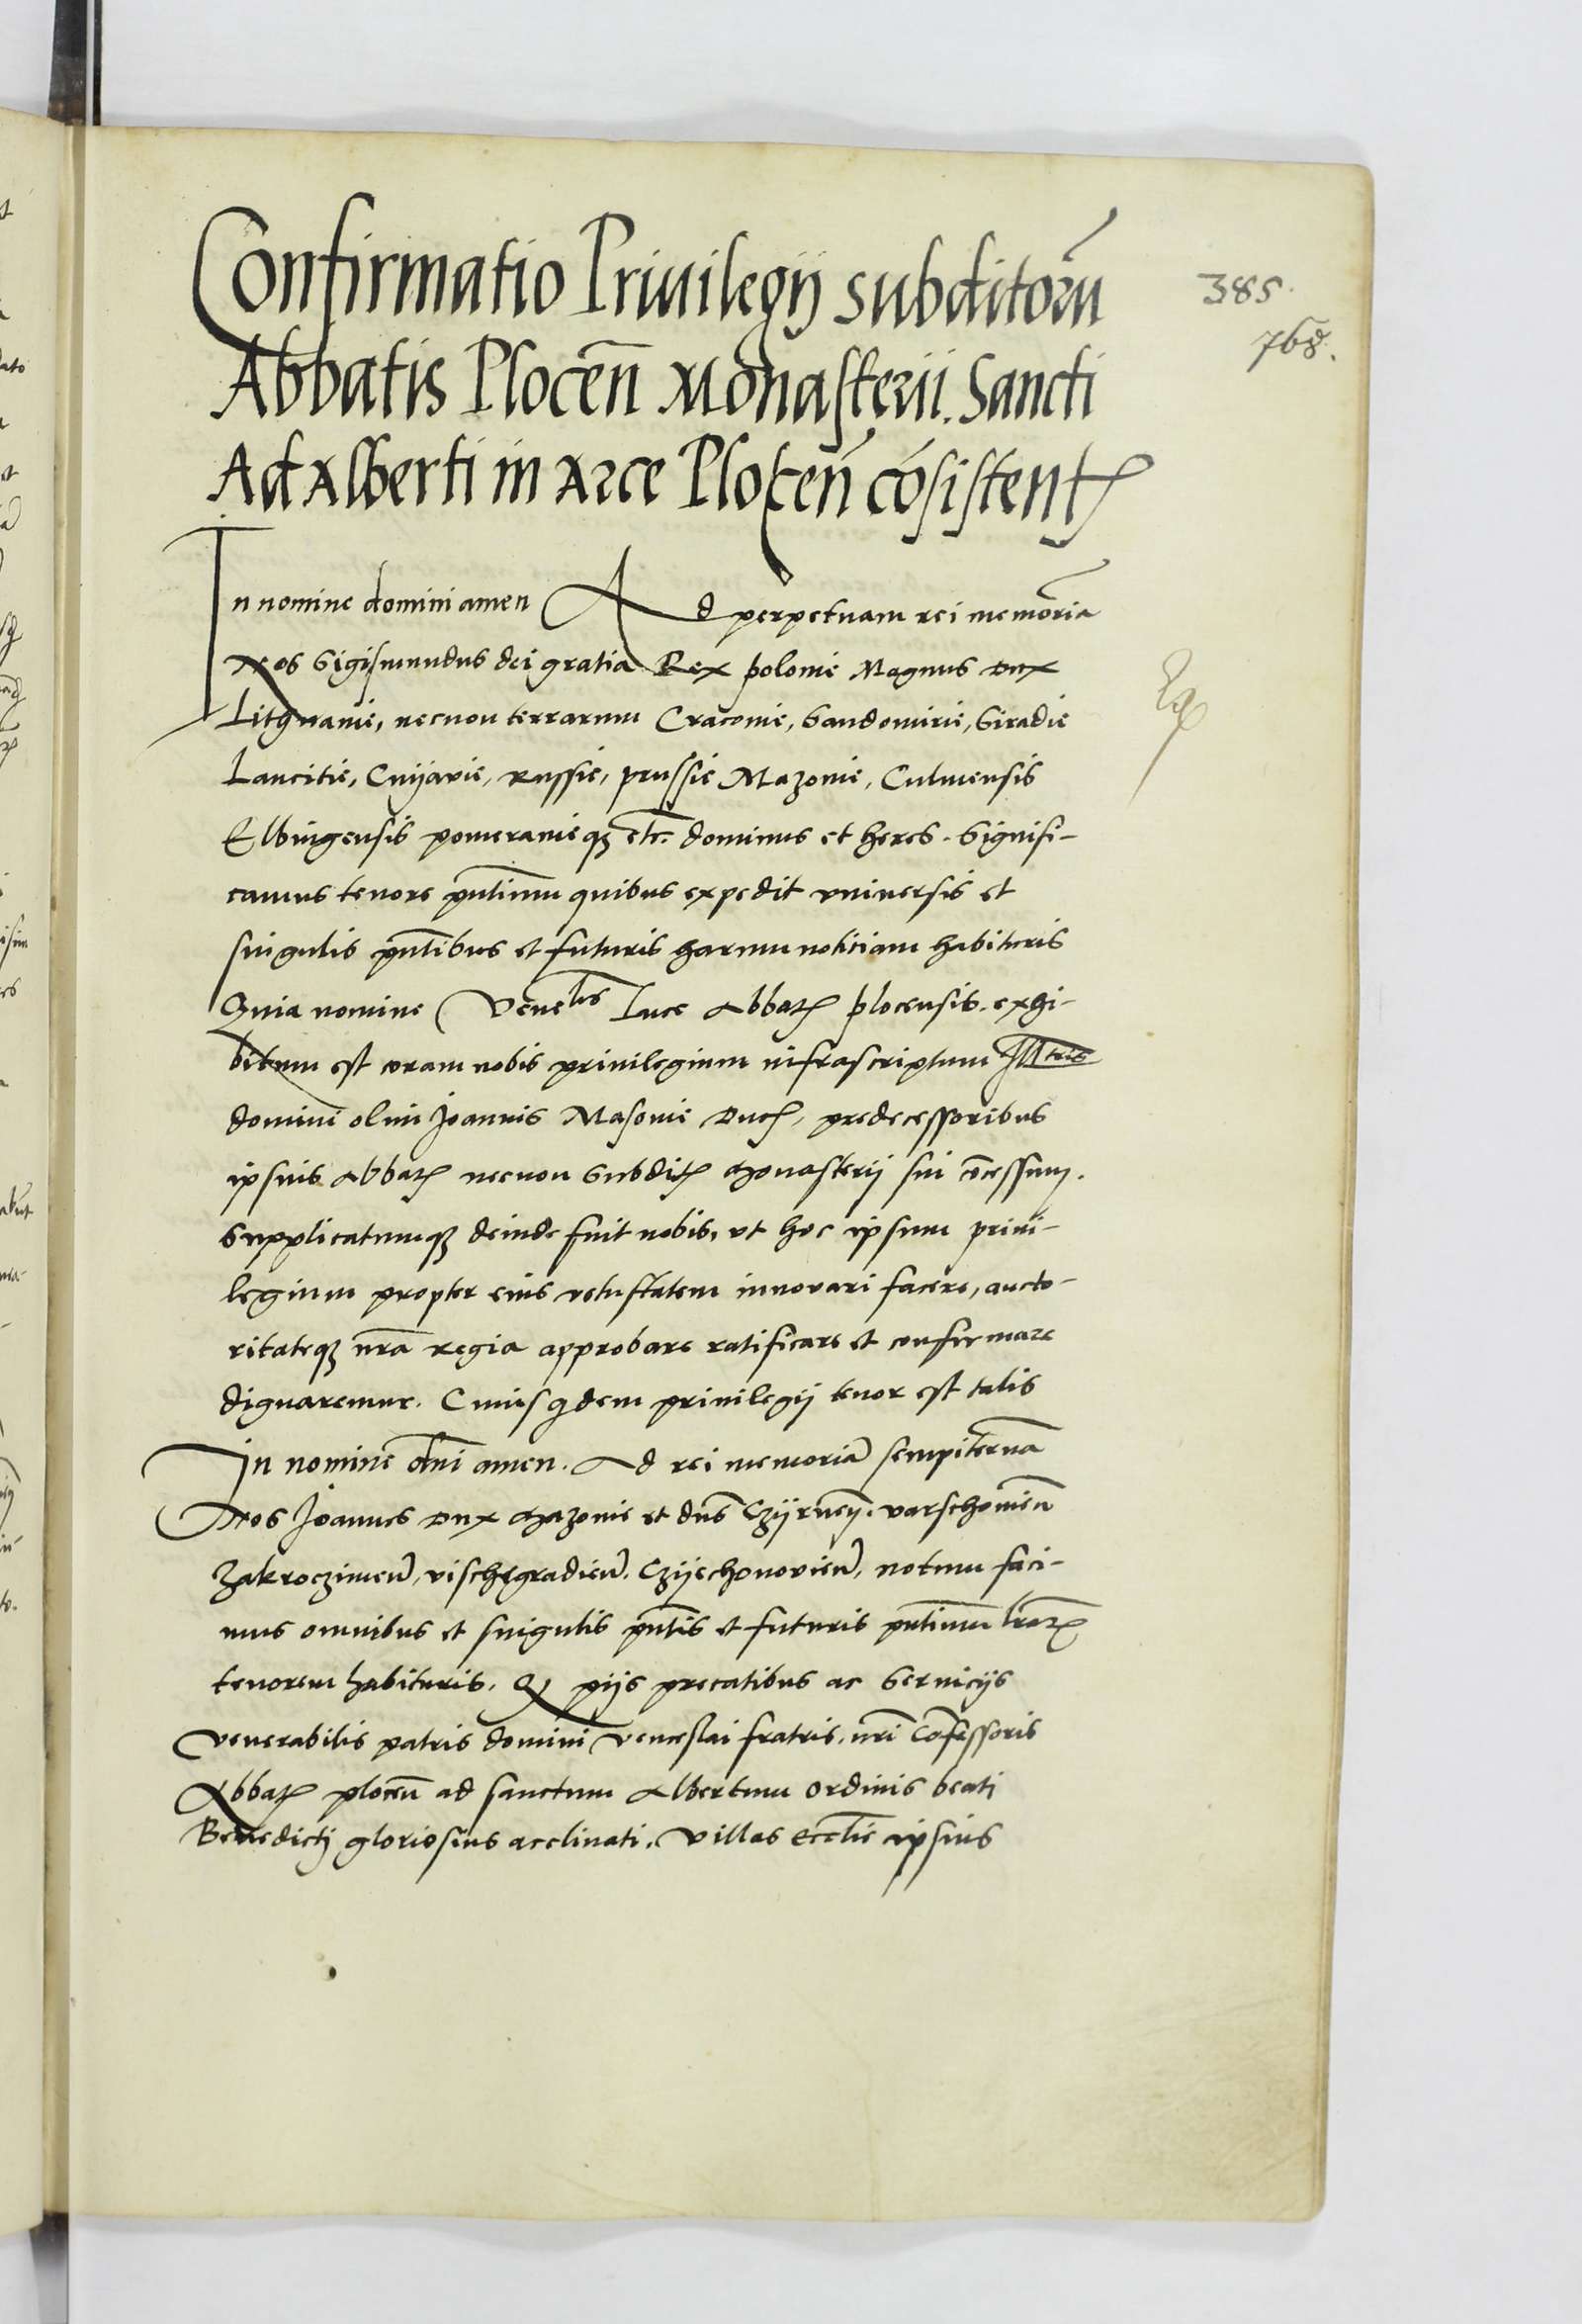 Confirmatio Priuilegij subditorū
Abbatis Plocen̄ Monasterii. Sancti
Adalberti in arce Plocen̄ cōsistentꝭ
385.
768.
In nomine domini amen Ad perpetuam rei memoriā
Nos Sigismundus dei gratia Rex polonie Magnus Dux
Lithuanie, necnon terrarum Cracouie, Sandomirie, Siradie
Lancitie, Cuijavie, Russie, prussie Mazouie, Culmensis
Elbingensis pomeranieqꝫ etc̄. dominus et heres. Signifi-
camus tenore pn̄tium quibus expedit vniuersis et
singulis pn̄tibus et futuris harum notitiam habituris
Quia nomine Venelis Luce Abbatꝭ plocensis. exhi-
bitum est coram nobis priuilegium infrascriptum Illtris
domini olim Joannis Masouie Ducꝭ, predecessoribus
ipsius Abbatꝭ necnon Subditꝭ Monasterij sui cōcessum.
Supplicatumqꝫ deinde fuit nobis, vt hoc ipsum priui-
legium propter eius vetustatem innovari facere, aucto-
ritateqꝫ nrā Regia approbare ratificare et confirmare
dignaremur. Cuiusqdem priuilegij tenor est talis
In nomine dn̄i amen. Ad rei memoriā sempiternā
Nos Joannes Dux Mazouie et dn̄s Czijrnen̄. varschouien̄
Zakroczimen̄, vischegradien̄. Czijechonovien̄, notum faci-
mus omnibus et singulis pn̄tis et futuris pn̄tium lrārꝫ
tenorem habituris. Q pijs precatibus ac Seruicijs
venerabilis patris domini venceslai fratris. nrī Cōfessoris
Abbatꝭ plocen̄ ad sanctum Albertum Ordinis beati
Benedictj gloriosius acclinati. Villas Eccl̄ie ipsius